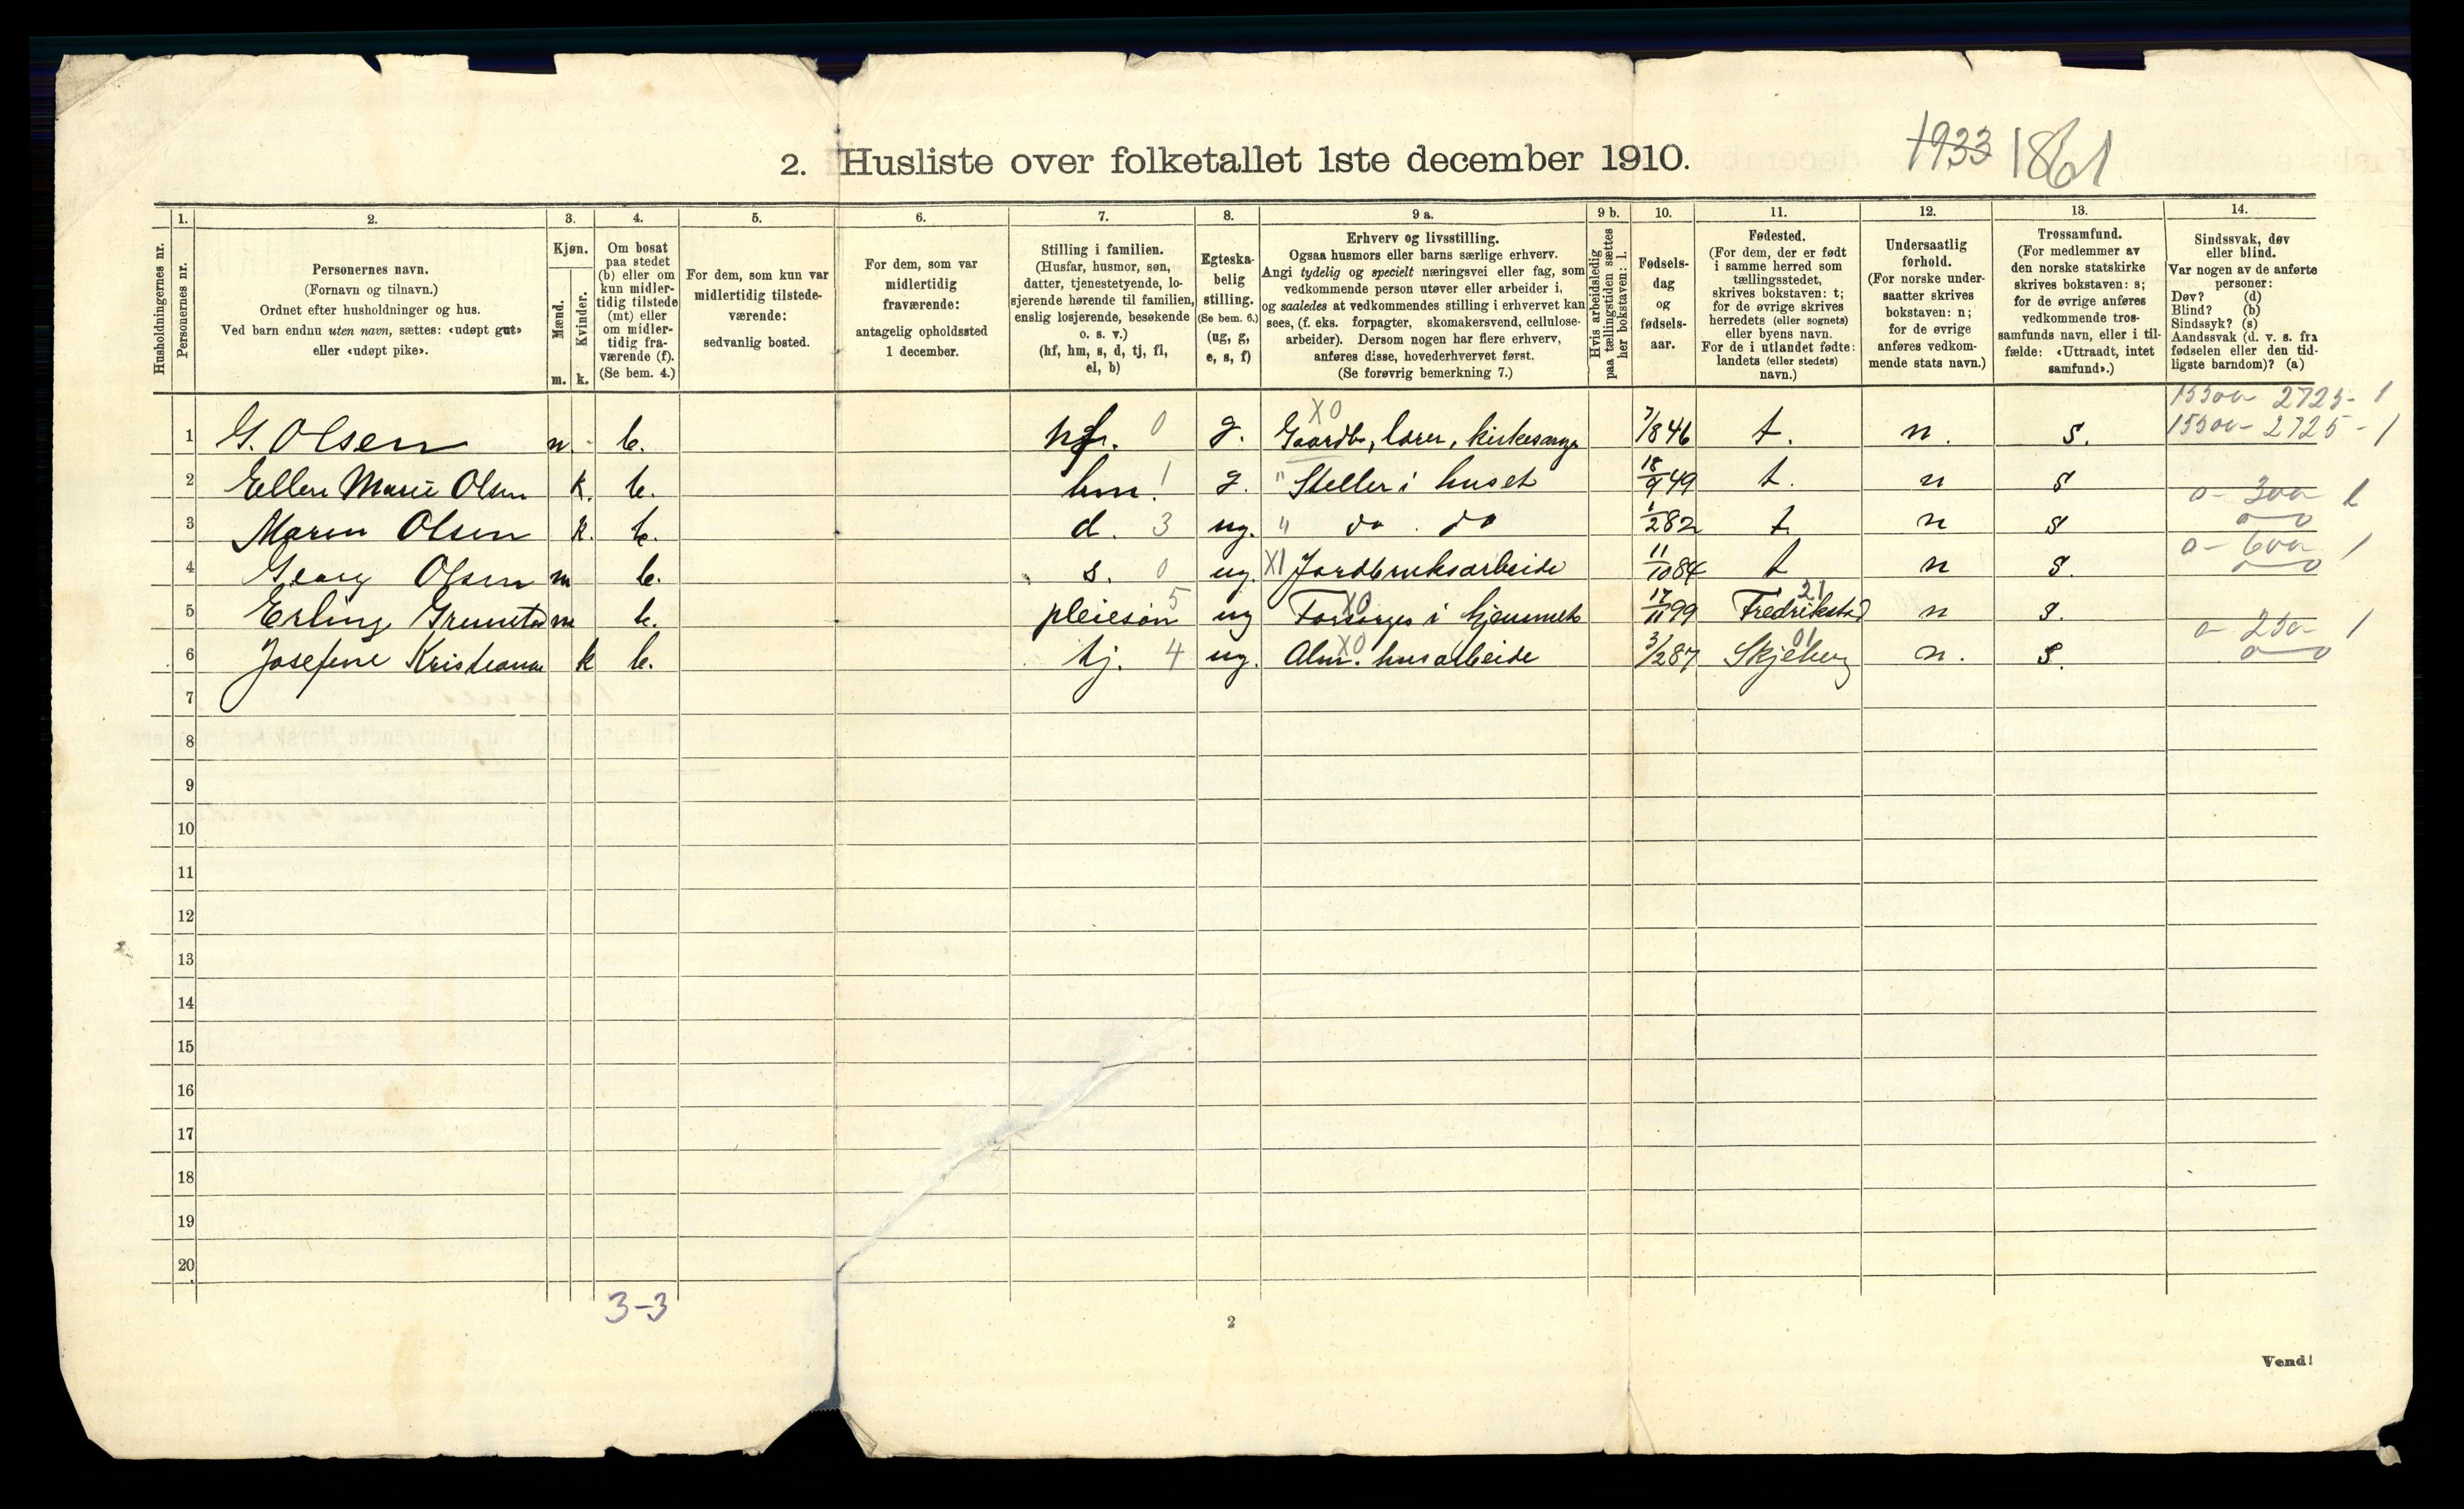 1933 1861
2. Husliste over folketallet 1ste december 1910.
Husholdningernes nr.
1.
Personernes nr.
2.
Personernes navn.
(Fornavn og tilnavn.)
Ordnet efter husholdninger og hus.
Ved barn endnu uten navn, sættes: «udøpt gut»
eller «udøpt pike».
3.
Kjøn.
Mænd.
Kvinder.
m. k.
4.
Om bosat
paa stedet
(b) eller om
kun midler-
tidig tilstede
(mt) eller
om midler-
tidig fra-
værende (f).
(Se bem. 4.)
5.
For dem, som kun var
midlertidig tilstede-
værende:
sedvanlig bosted.
6.
For dem, som var
midlertidig
fraværende:
antagelig opholdssted
1 december.
7.
Stilling i familien.
(Husfar, husmor, søn,
datter, tjenestetyende, lo-
sjerende hørende til familien,
enslig losjerende, besøkende
o. s. v.)
(hf, hm, s, d, tj, fl,
el, b)
8.
Egteska-
belig
stilling.
(Se bem. 6.)
(ug, g,
e, s, f)
9 a.
Erhverv og livsstilling.
Ogsaa husmors eller barns særlige erhverv.
Angi tydelig og specielt næringsvei eller fag, som
vedkommende person utøver eller arbeider i,
og saaledes at vedkommendes stilling i erhvervet kan
sees, (f. eks. forpagter, skomakersvend, cellulose-
arbeider). Dersom nogen har flere erhverv,
anføres disse, hovederhvervet først.
(Se forøvrig bemerkning 7.)
9 b.
Hvis arbeidsledig
paa tællingstiden sættes
her bokstaven: l.
10.
Fødsels-
dag
og
fødsels-
aar.
11.
Fødested.
(For dem, der er født
i samme herred som
tællingsstedet,
skrives bokstaven: t;
for de øvrige skrives
herredets (eller sognets)
eller byens navn.
For de i utlandet fødte:
landets (eller stedets)
navn.)
12.
Undersaatlig
forhold.
(For norske under-
saatter skrives
bokstaven: n;
for de øvrige
anføres vedkom-
mende stats navn.)
13.
Trossamfund.
(For medlemmer av
den norske statskirke
skrives bokstaven: s;
for de øvrige anføres
vedkommende tros-
samfunds navn, eller i til-
fælde: «Uttraadt, intet
samfund».)
14.
Sindssvak, døv
eller blind.
Var nogen av de anførte
personer:
Døv? (d)
Blind? (b)
Sindssyk? (s)
Aandssvak (d. v. s. fra
fødselen eller den tid-
ligste barndom)? (a)
15500 2725- 1
1 G. Olsen m. b. hf. 0 g. X0 Gaardb., lærer, kirkesanger 7/8 46 t. n. s. 15500 - 2725 - 1
2 Ellen Marie Olsen k. b. hm. 1 g. " Steller i huset 18/9 49 t. n s
3 Maren Olsen k. b. d. 3 ug. " do. do 1/2 82 t. n s 0 - 300 1
0 0
4 Georg Olsen m b. s. 0 ug. X1 Jordbruksarbeide 11/10 84 t n s. 0 - 600 1
0 0
5 Erling m b. pleiesøn 5 ug X0 Forsørges i hjemmet 17/11 99 Fredrikstad 21 n s.
6 Josefine Kristiansen k b. tj. 4 ug. X0 Alm. husarbeide 3/2 87 Skjeberg 01 n. s. 0 - 250 1
0 0
7
8
9
10
11
12
13
14
15
16
17
18
19
20
3-3
2
Vend!